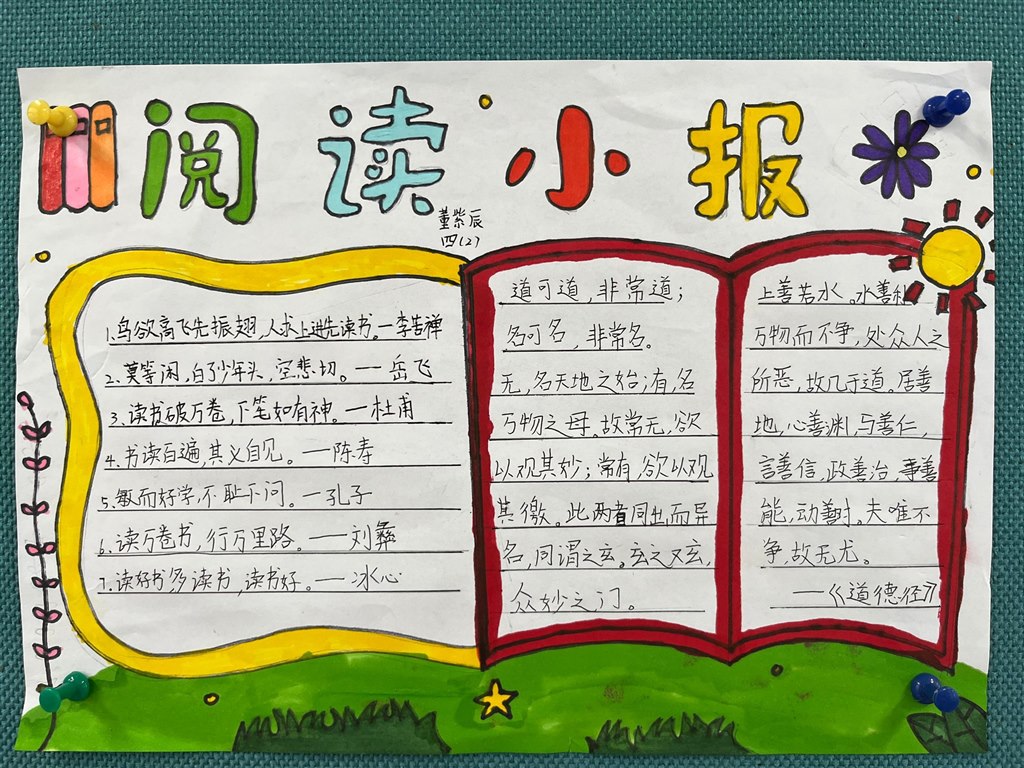 阅读小报
董紫辰
四(2)
1.鸟欲高飞先振翅,人求上进先读书。—李苦禅
2.莫等闲,白了少年头,空悲切。——岳飞
3.读书破万卷,下笔如有神。—杜甫
4.书读百遍,其义自见。——陈寿
5.敏而好学,不耻下问。—孔子
6.读万卷书,行万里路。——刘彝
7.读好书多读书,读书好。——冰心
道可道,非常道;
名可名,非常名。
无,名天地之始;有,名
万物之母。故常无,欲
以观其妙;常有,欲以观
其徼。此两者同出而异
名,同谓之玄。玄之又玄,
众妙之门。
上善若水。水善利
万物而不争,处众人之
所恶,故几于道。居善
地,心善渊,与善仁,
言善信,政善治,事善
能,动善时。夫唯不
争,故无尤。
——《道德经》